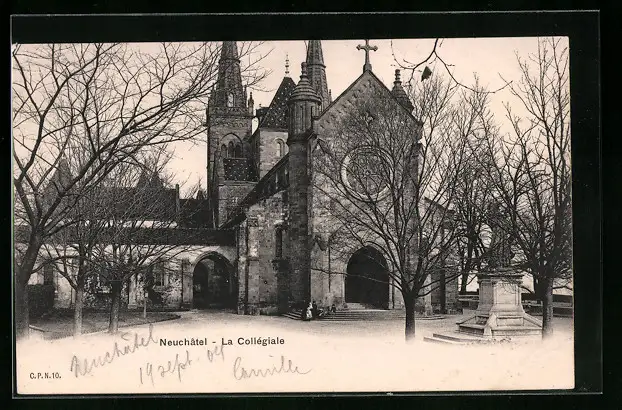 Neuchâtel - La Collégiale
C.P.N.10.
Neuchâtel
19 sept. 04 Camille